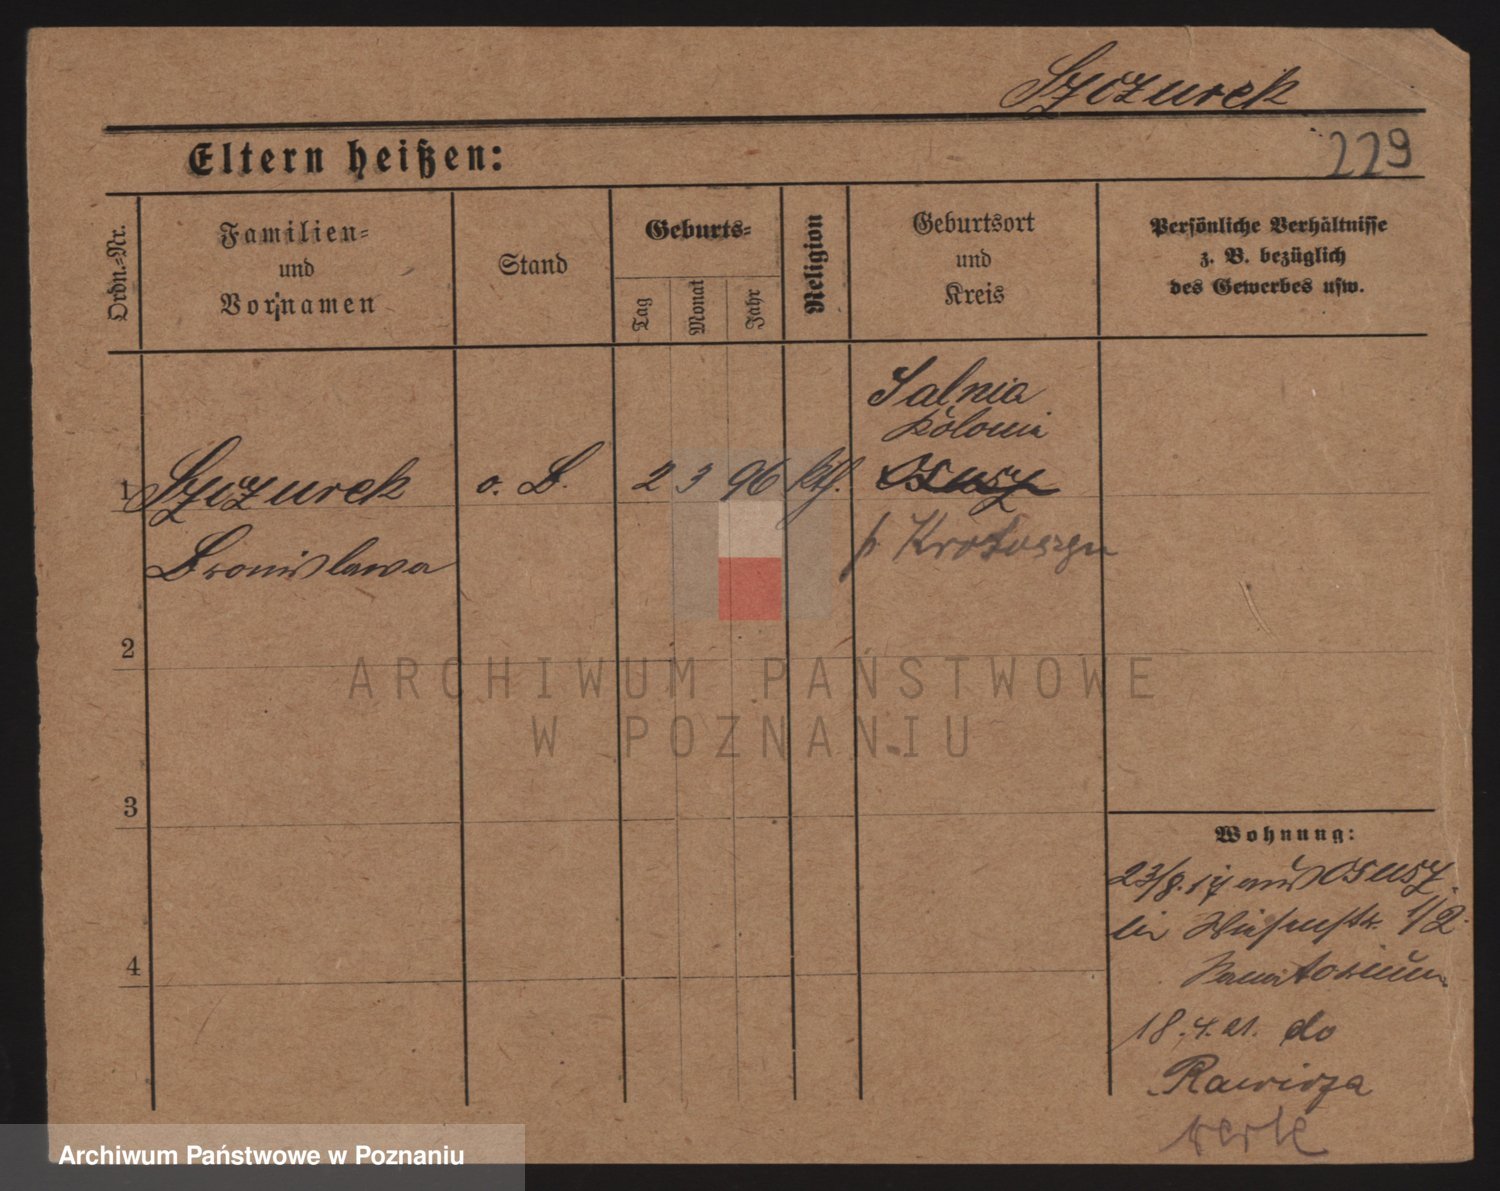 Szczurek
229
Eltern heißen:
Ordn.=Nr.
Familien=
und
Vornamen
Stand
Geburts=
Tag
Monat
Jahr
Religion
Geburtsort
und
Kreis
Persönliche Verhältnisse
z. B. bezüglich
des Gewerbes usw.
Salnia
Kolonia
1 Szczurek o. B. 2 3 96 kth. Osusz
p. Krotoszyn
Bronislawa
2
3
4
Wohnung:
23/8. 17 aus Osusz
bei Wiesenstr. 1/2
Sanatorium
18.4.21. do
Rawicza
ARCHIWUM PAŃSTWOWE
W POZNANIU
Archiwum Państwowe w Poznaniu